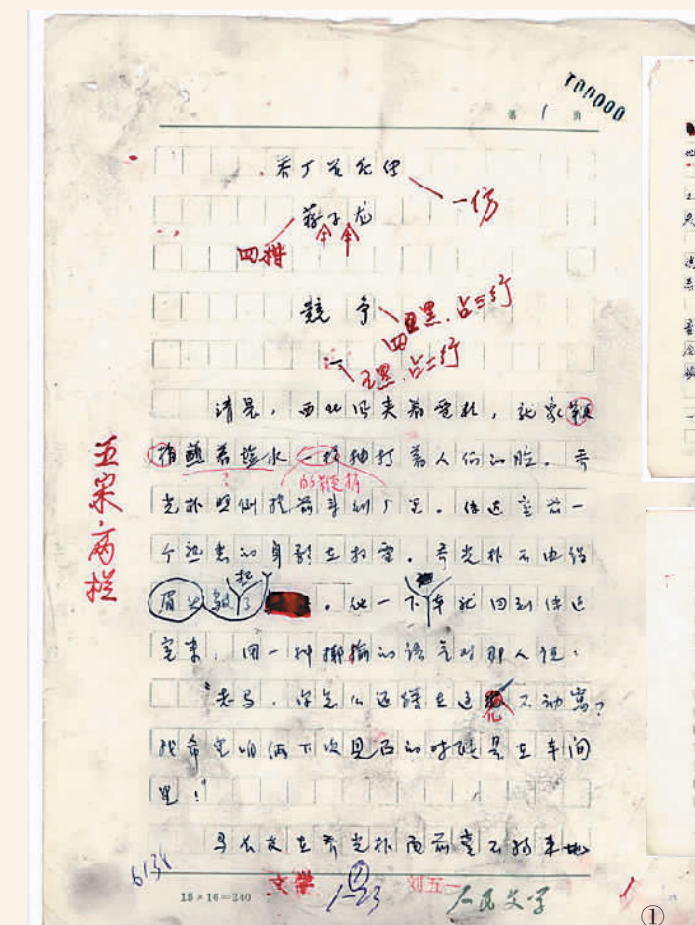 第 1 页
T00000
乔厂长后传
一仿
蒋子龙
四楷
竞争
四黑.占三行
一
五黑.占二行
清晨，西北风夹着雪粒，就象鞭
梢蘸着盐水一样抽打着人们的脸。乔
的鞭梢
光朴照例提前来到厂里。传达室前一
个熟悉的身影在扫雪。乔光朴不由得
眉头皱了起
。他一下车就回到传达
室来，用一种揶揄的语气对那人说：
“老马，你怎么还缩在这儿不动窝？
我希望咱俩下次见面的时候是在车间
里！”
马长友在乔光朴面前
五宋.两栏
6138
15×16=240
文学
1-23
刘五一
人民文学
①